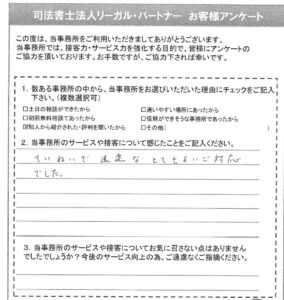 司法書士法人リーガル・パートナー お客様アンケート
この度は、当事務所をご利用いただきましてありがとうございます。
当事務所では、接客力・サービス力を強化する目的で、皆様にアンケートの
ご協力を頂いております。お手数ですが、ご協力下されば幸いです。
1. 数ある事務所の中から、当事務所をお選びいただいた理由にチェックをご記入
下さい。(複数選択可)
□土日の相談ができたから □通いやすい場所にあったから
□初回無料相談であったから □信頼ができそうな事務所であったから
☑知人から紹介された・評判を聞いたから □その他( )
2. 当事務所のサービスや接客について感じたことをご記入ください。
ていねいで迅速なとてもよいご対応
でした。
3. 当事務所のサービスや接客についてお気に召さない点はありません
でしたでしょうか?今後のサービス向上の為、ご遠慮なくご指摘ください。